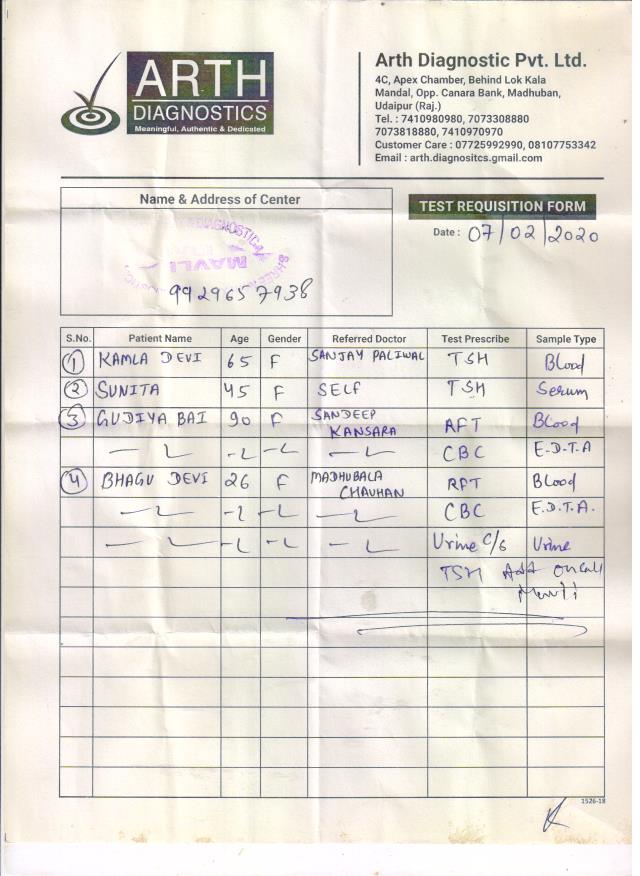 ARTH
DIAGNOSTICS
Meaningful, Authentic & Dedicated
Arth Diagnostic Pvt. Ltd.
4C, Apex Chamber, Behind Lok Kala
Mandal, Opp. Canara Bank, Madhuban,
Udaipur (Raj.)
Tel. : 7410980980, 7073308880
7073818880, 7410970970
Customer Care : 07725992990, 08107753342
Email : arth.diagnositcs.gmail.com
Name & Address of Center
DIAGNOSTIC
MAVLI
9929657938
TEST REQUISITION FORM
Date : 07/02/2020
S.No. Patient Name Age Gender Referred Doctor Test Prescribe Sample Type
1 KAMLA DEVI 65 F SANJAY PALIWAL TSH Blood
2 SUNITA 45 F SELF TSH Serum
3 GUDIYA BAI 90 F SANDEEP KANSARA RFT Blood
CBC E.D.T.A
4 BHAGU DEVI 26 F MADHUBALA CHAUHAN RFT Blood
CBC E.D.T.A.
Urine C/S Urine
TSH Add oncall
1526-18